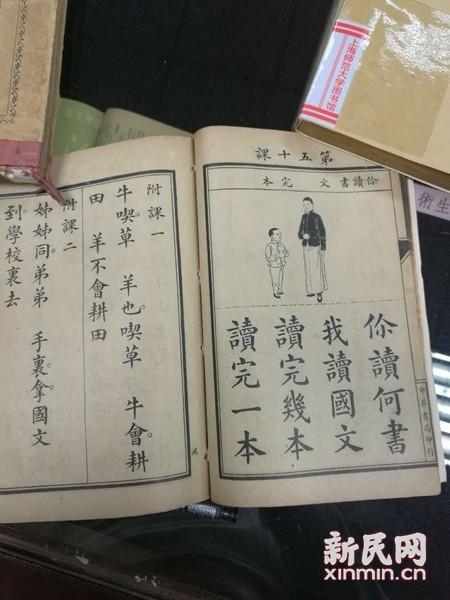 上海师范大学图书馆
第五十課
你讀書 文 完 本
你讀何書
我讀國文
讀完幾本
讀完一本
中華書局印行
附課一
牛喫草 羊也喫草 牛會耕
田 羊不會耕田
附課二
姊姊同弟弟 手裏拿國文
到學校裏去
術生
新民网
xinmin.cn